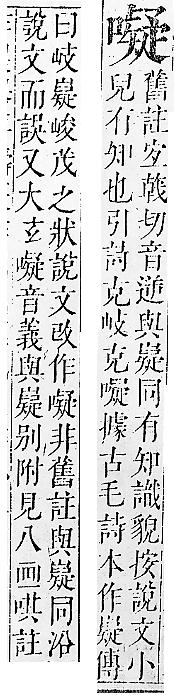 㘈
舊註宜戟切音逆與嶷同有知識貌按說文小
兒有知也引詩克岐克㘈據古毛詩本作嶷傳
曰岐嶷峻茂之狀說文改作㘈非舊註與嶷同沿
說文而誤又大玄㘈音義與嶷別附見八画哄註